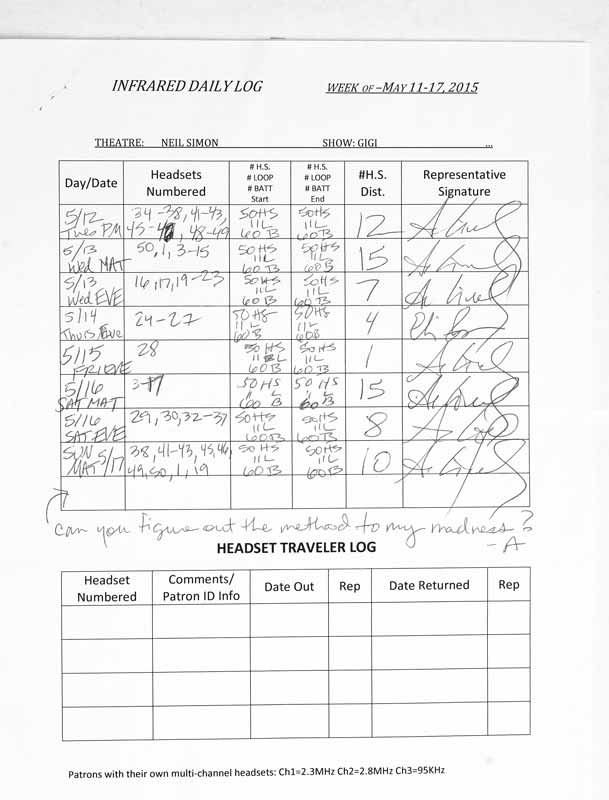 INFRARED DAILY LOG WEEK OF –MAY 11-17, 2015
THEATRE: NEIL SIMON SHOW: GIGI ...
Day/Date Headsets Numbered # H.S. # LOOP # BATT Start # H.S. # LOOP # BATT End #H.S. Dist. Representative Signature
5/12 Tues PM 34-38, 41-43, 48-49 50HS 11L 60B 50HS 11L 60B 12
5/13 Wed MAT 50, 1, 3-15 50HS 11L 60B 50HS 11L 60B 15
5/13 Wed EVE 16, 17, 19-23 50HS 11L 60B 50HS 11L 60B 7
5/14 Thurs Eve 24-27 50HS 11L 60B 50HS 11L 60B 4
5/15 FRI EVE 28 50HS 11L 60B 50HS 11L 60B 1
5/16 SAT MAT 3-17 50HS 11L 60B 50HS 11L 60B 15
5/16 SAT EVE 29, 30, 32-37 50HS 11L 60B 50HS 11L 60B 8
SUN MAT 5/17 38, 41-43, 45, 46, 49, 50, 1, 19 50HS 11L 60B 50HS 11L 60B 10
can you figure out the method to my madness?
- A
HEADSET TRAVELER LOG
Headset Numbered Comments/ Patron ID Info Date Out Rep Date Returned Rep
Patrons with their own multi-channel headsets: Ch1=2.3MHz Ch2=2.8MHz Ch3=95KHz